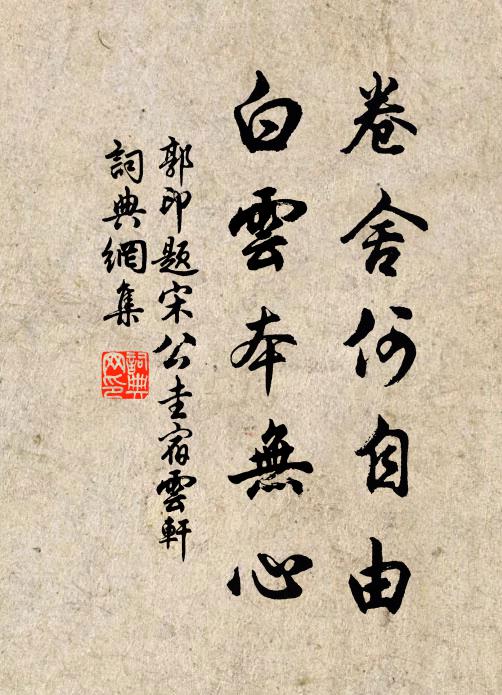 卷舍何自由
白雲本無心
郭印題宋公圭宿雲軒
詞典網集
詞典
网印